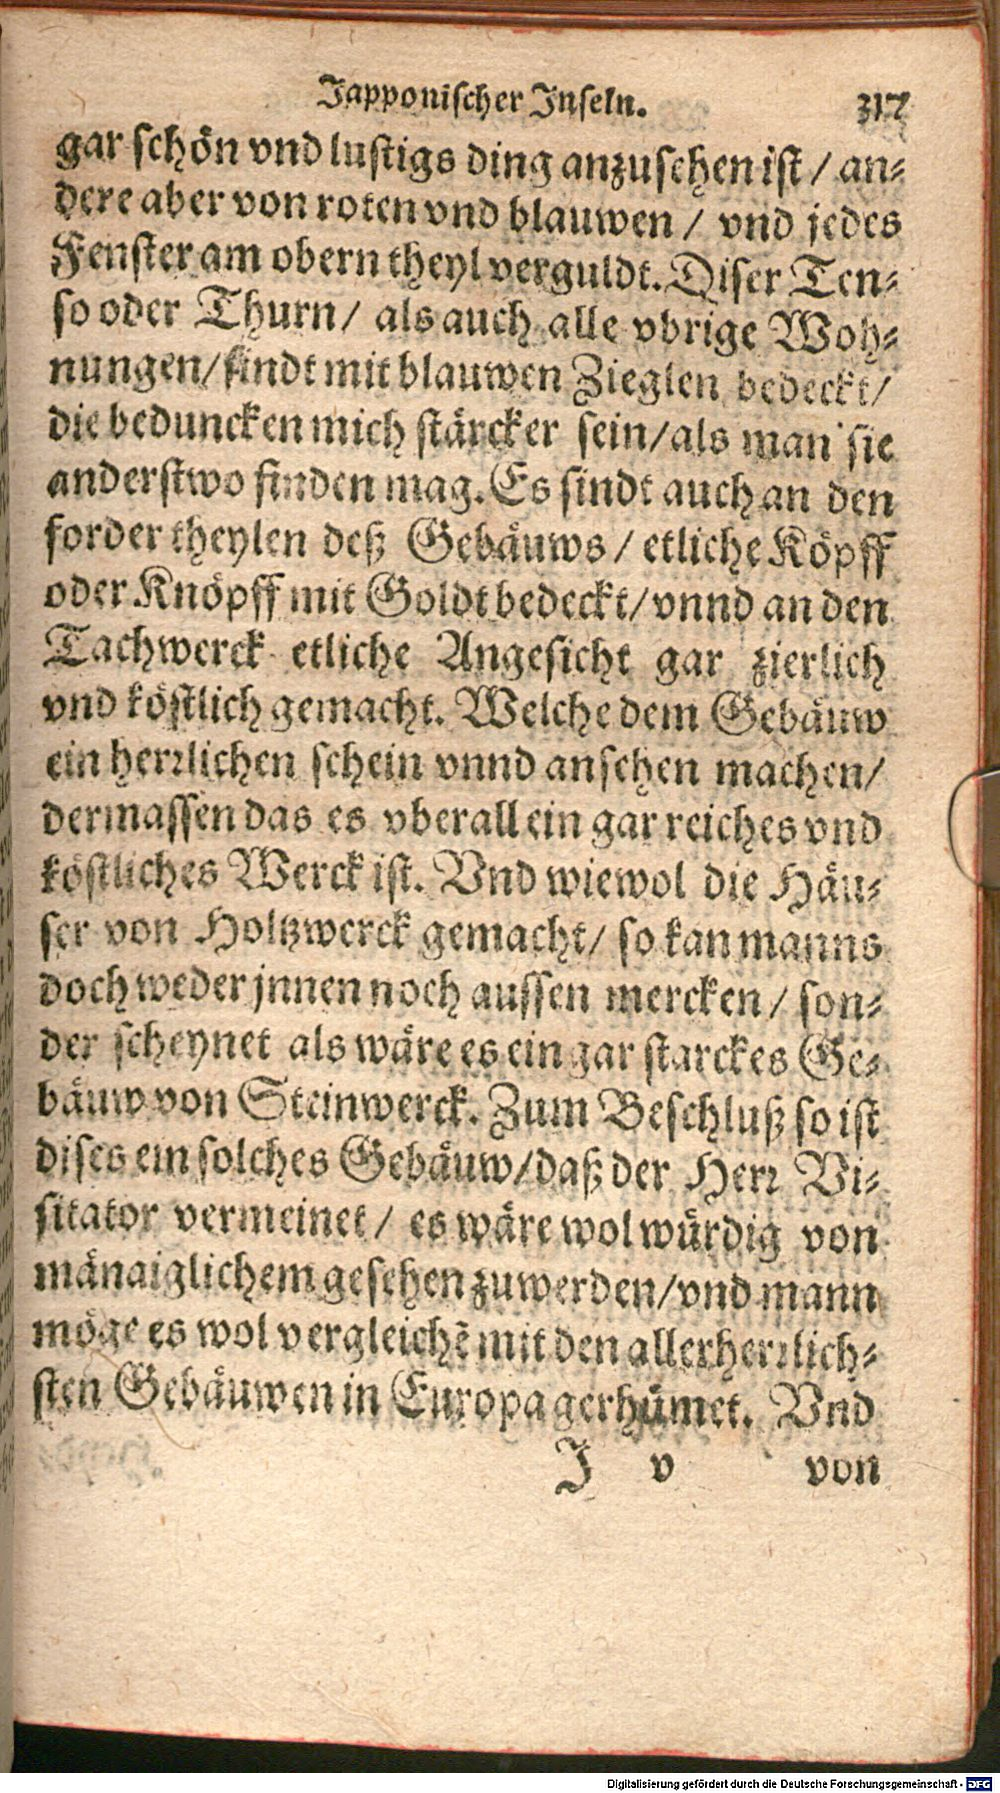 Japponischer Inseln. 317
gar schön vnd lustigs ding anzusehen ist / an⸗
dere aber von roten vnd blauwen / vnd jedes
Fenster am obern theyl verguldt. Diser Ten⸗
so oder Thurn / als auch alle vbrige Woh⸗
nungen / sindt mit blauwen Zieglen bedeckt /
die beduncken mich stärcker sein / als man sie
anderstwo finden mag. Es sindt auch an den
forder theylen deß Gebäuws / etliche Köpff
oder Knöpff mit Goldt bedeckt / vnnd an den
Tachwerck etliche Angesicht gar zierlich
vnd köstlich gemacht. Welche dem Gebäuw
ein herꝛlichen schein vnnd ansehen machen /
dermassen das es vberall ein gar reiches vnd
köstliches Werck ist. Vnd wiewol die Häu⸗
ser von Holtzwerck gemacht / so kan manns
doch weder jnnen noch aussen mercken / son⸗
der scheynet als wäre es ein gar starckes Ge⸗
bäuw von Steinwerck. Zum Beschluß so ist
dises ein solches Gebäuw / daß der Herꝛ Vi⸗
sitator vermeinet / es wäre wol würdig von
mänaiglichem gesehen zuwerden / vnd mann
möge es wol vergleichẽ mit den allerherꝛlich⸗
sten Gebäuwen in Europa gerhümet. Vnd
J v von
Digitalisierung gefördert durch die Deutsche Forschungsgemeinschaft - DFG